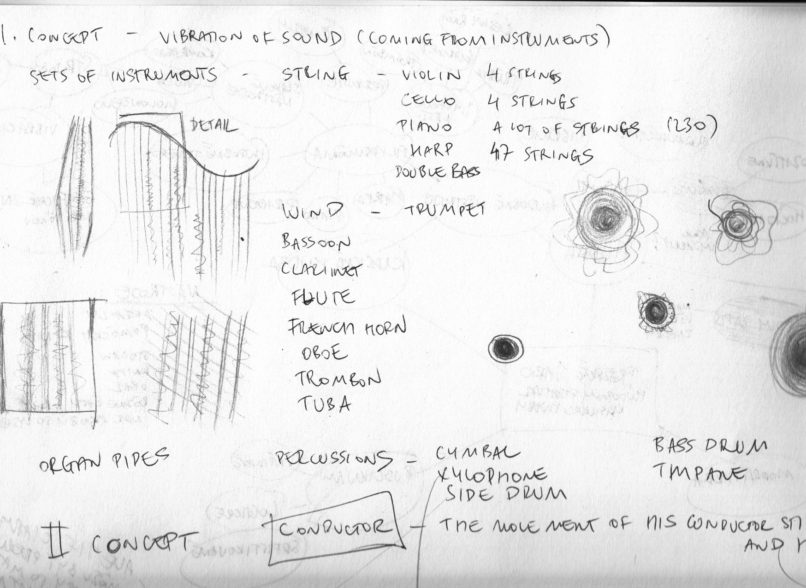 1. CONCEPT - VIBRATION OF SOUND (COMING FROM INSTRUMENTS)
SETS OF INSTRUMENTS - STRING - VIOLIN 4 STRINGS
CELLO 4 STRINGS
PIANO A LOT OF STRINGS (230)
HARP 47 STRINGS
DOUBLE BASS
DETAIL
WIND - TRUMPET
BASSOON
CLARINET
FLUTE
FRENCH HORN
OBOE
TROMBON
TUBA
ORGAN PIPES
PERCUSSIONS - CYMBAL BASS DRUM
XYLOPHONE TIMPANE
SIDE DRUM
II CONCEPT CONDUCTOR - THE MOVEMENT OF HIS CONDUCTOR
AND